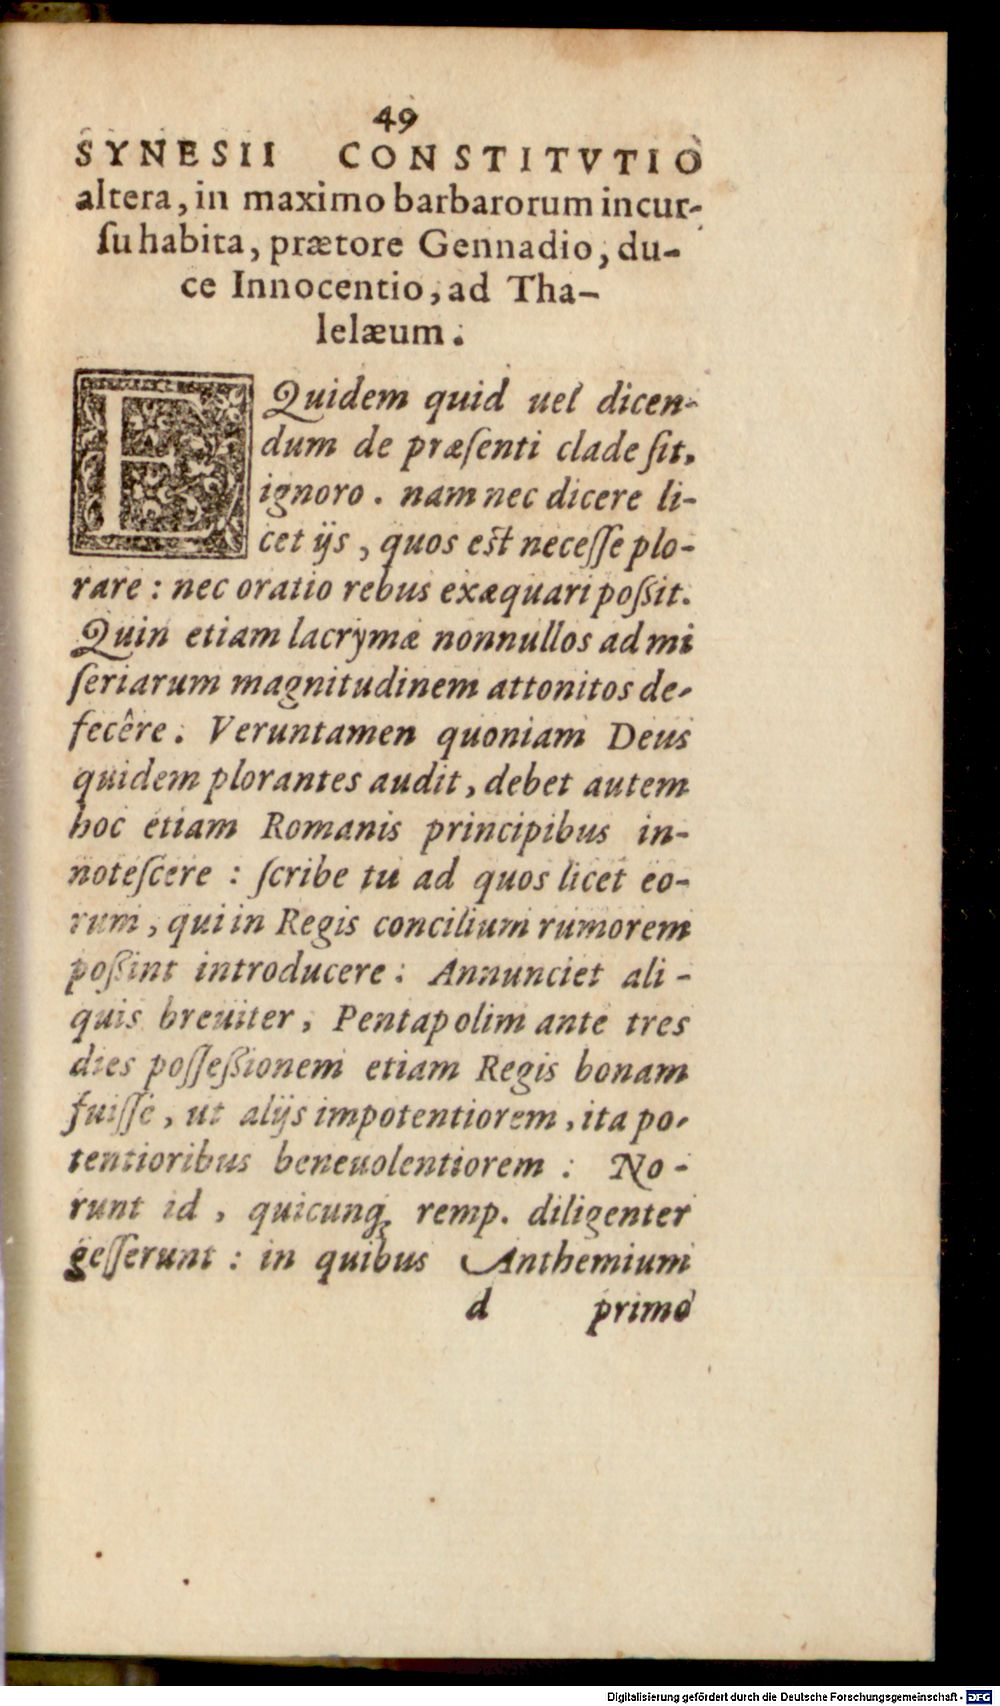 49
SYNESII CONSTITVTIO
altera, in maximo barbarorum incur-
ſu habita, prætore Gennadio, du-
ce Innocentio, ad Tha-
lelæum.
EQuidem quid uel dicen-
dum de præſenti clade ſit,
ignoro. nam nec dicere li-
cet ijs, quos est neceſſe plo-
rare: nec oratio rebus exæquari poßit.
Quin etiam lacrymæ nonnullos ad mi
ſeriarum magnitudinem attonitos de-
fecêre. Veruntamen quoniam Deus
quidem plorantes audit, debet autem
hoc etiam Romanis principibus in-
noteſcere: ſcribe tu ad quos licet eo-
rum, qui in Regis concilium rumorem
poßint introducere: Annunciet ali-
quis breuiter, Pentapolim ante tres
dies poſſeßionem etiam Regis bonam
fuiſſe, ut alijs impotentiorem, ita po-
tentioribus beneuolentiorem: No-
runt id, quicunq; remp. diligenter
geſſerunt: in quibus Anthemium
d primò
Digitalisierung gefördert durch die Deutsche Forschungsgemeinschaft - DFG